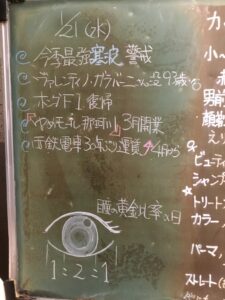 1/21(水)
今季最強寒波 警戒
ヴァレンティノ・ガラバーニさん没93歳
ホンダF1復帰
3月開業
西鉄電車 運賃 4月から
瞳の黄金比率の日
1:2:1
カ
小〜
男前
顔
ビューティ
シャンプ
トリート
カラー
パーマ
ストレート